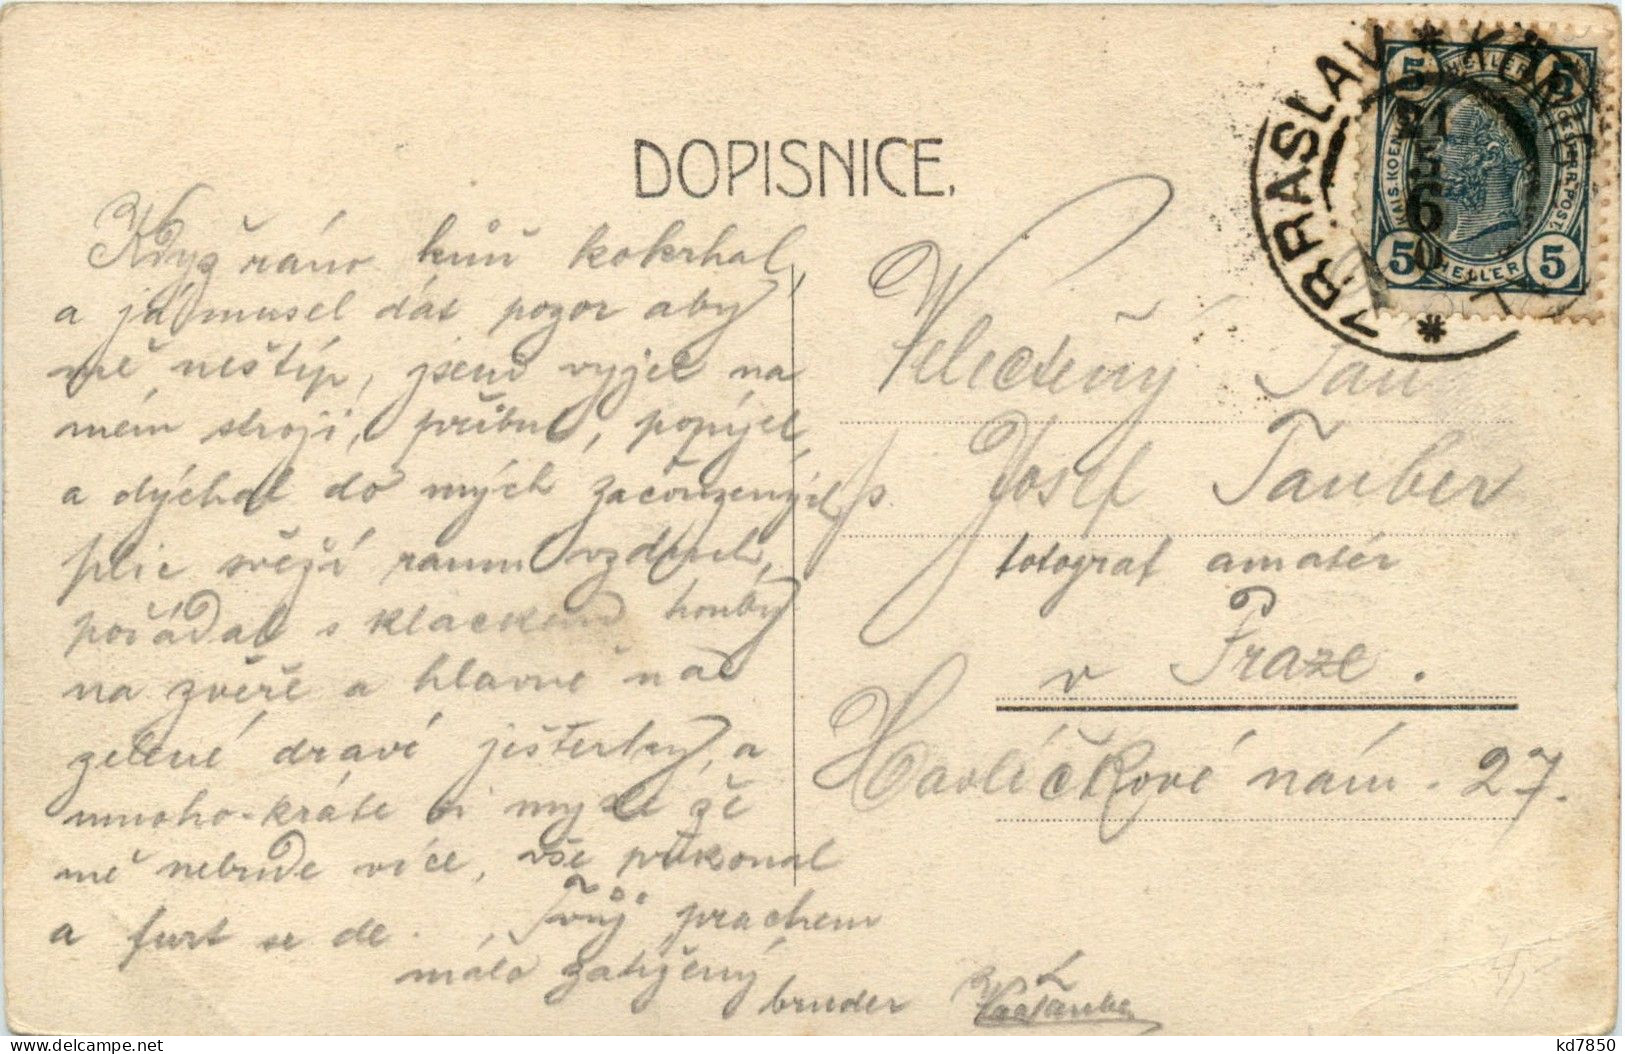 DOPISNICE.
ZBRASLAV * KÖNIGSAAL *
21 5 6
5 HELLER 5
KAIS. KOENIGL. OESTERR. POST.
5 HELLER 5
Když ráno kůň kokrhal,
a já musel dát pozor aby
mě neštíp, jsem vyjel na
mém stroji, přibul, popojel,
a dýchal do mých začouzených
plic svěží ranní vzduch,
pořádal s klackem honby
na zvěř a hlavně na
zelené dravé ještěrky, a
mnoho-kráte si myslel že
mě nebude více, vše překonal
a furt se de. Tvůj prachem
málo zatížený
bruder
Velectěný Pan
p. Josef Tauber
fotograf amatér
v Praze.
Havlíčkové nám. 27.
kd7850